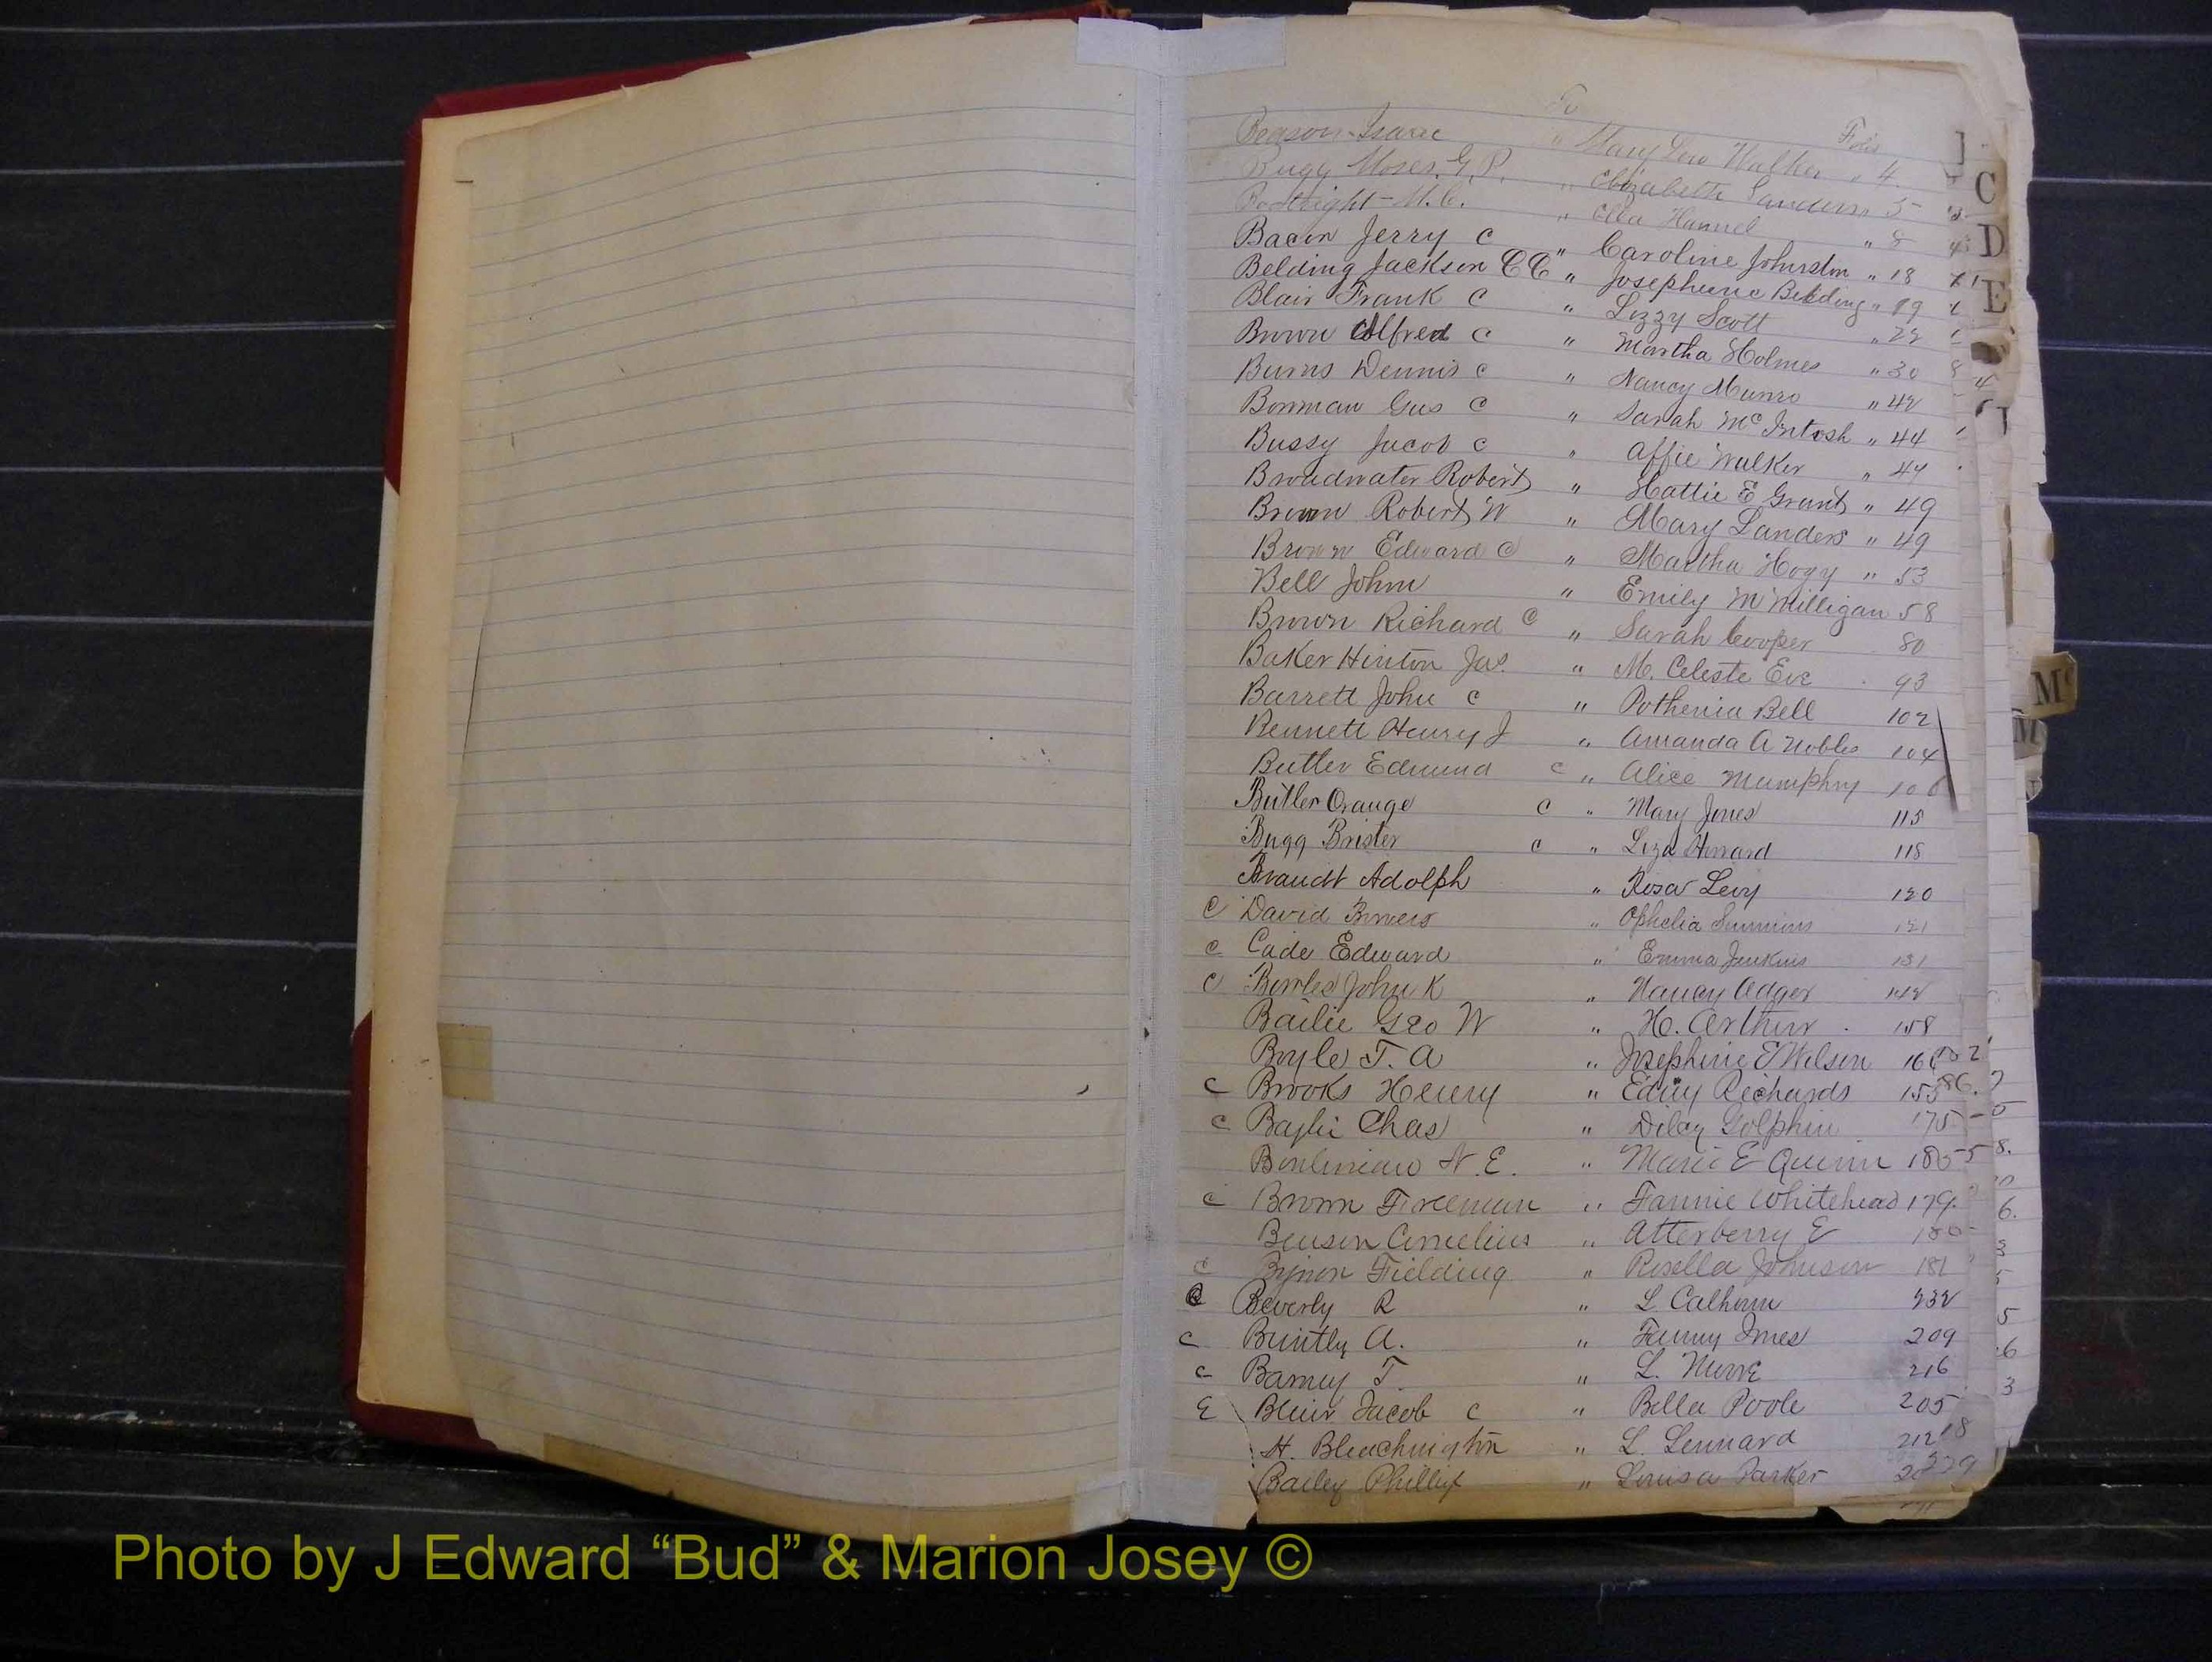 To
Folio
Beason Isaac " Mary Lew Walker " 4
Bugg Moses. G. P. " Elizabeth Sanders " 5
Boatright - M. C. " Ella Hammel " 8
Bacon Jerry C " Caroline Johnston " 18
Belding Jackson CC " Josephene Belding " 19
Blair Frank C " Lizzy Scott " 22
Brown Alfred C " Martha Holmes " 30
Burns Dennis C " Nancy Munro " 42
Bowman Gus C " Sarah McIntosh " 44
Bussy Jacob C " Affie Walker " 47
Broadwater Robert " Hattie E Grant " 49
Brown Robert W " Mary Landers " 49
Brown Edward C " Martha Hogy " 53
Bell John " Emily McMilligan 58
Brown Richard C " Sarah Cooper 80
Baker Hinton Jas. " M. Celeste Eve 93
Barrett John C " Pothenia Bell 102
Bennett Henry J " Amanda A Nobles 104
Butler Edmund C " Alice Mumphry 106
Butler Orange C " Mary Jones 115
Bugg Brister C " Liza Howard 118
Brandt Adolph " Rosa Levy 120
C David Bowers " Ophelia Simmins 121
C Cade Edward " Emma Jenkins 131
C Bowles John K " Nancy Adger 142
Bailie Geo W " H. Arthur 158
Boyle T. A " Josephine E Wilson
C Brooks Henry " Edny Richards 153
C Baylie Chas " Dilcy Golphin 175
N. E. " Marie E Quinn 185
C Brown Freeman " Fannie Whitehead 179
Benson Cornelius " Atterberry E 180
C Bynon Fielding " Rosella Johnson 181
C Beverly R " L. Calhoun 232
C Buntly A. " Fanny Jones 209
C Barney T. " L. Moore 216
E Blair Jacob C " Bella Poole 205
H. Bleachington " L. Lennard 212
Bailey Phillip " Louisa Parker
C
D
E
Mc
M
Photo by J Edward “Bud” & Marion Josey ©